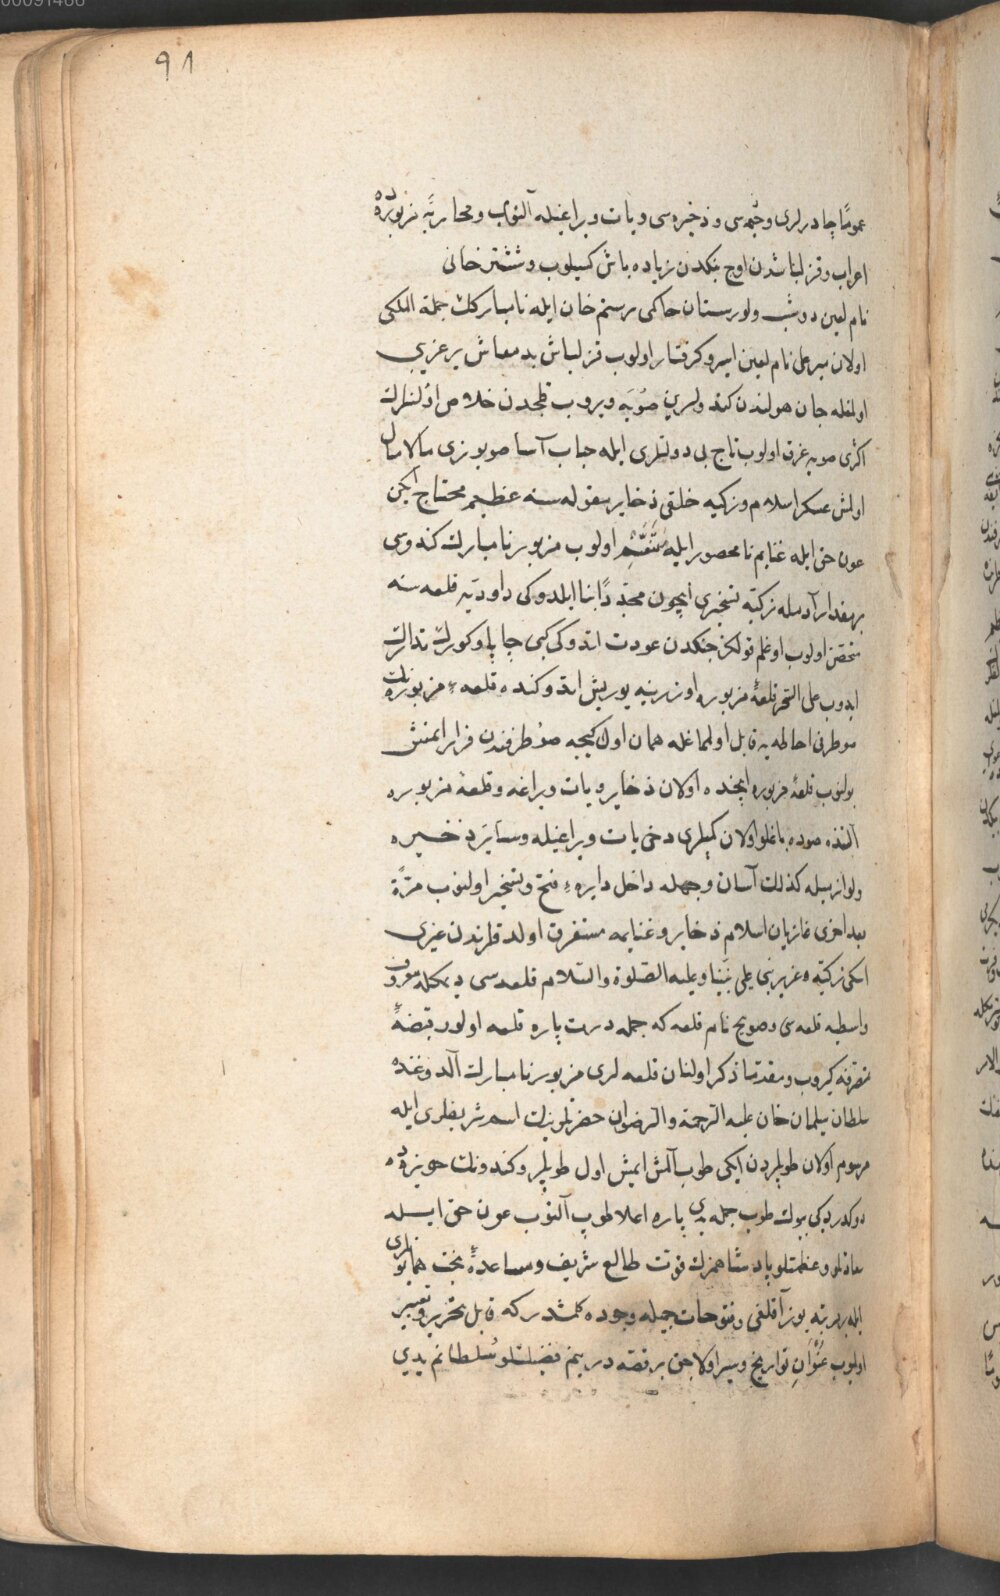 00091486
٩٨
عمومًا چادرلری و خیمه‌سی و ذخیره‌سی و یات و یراغیله آلنوب و محاربهٔ مزبوره‌ده
اعراب و قزلباشدن اوچ بیکدن زیاده باش کسیلوب و ششتر خانی
نام لعین دوشب ولورستان حاکمی رستم خان ایله نامبارک جملة الملکی
اولان میر علی نام لعین اسیر و کرفتار اولوب قزلباش بد معاش یر عزیی
اولمغله جان هولندن کندولرین صویه ویروب قلجدن خلاص اولنلرک
اکثری صویه غرق اولوب تاج بی دولتلری ایله حباب آسا صو یوزی مالامال
اولمش عسکر اسلام و زکیه خلقی ذخایر مقوله‌سنه عظیم محتاج ایکن
عون حق ایله غنایم نامحصور ایله متنعم اولوب مزبور نامبارک کندوسی
بر مقدار آدمله زکیه تسخیری ایچون مجددًا بنا ایلدوکی داودیه قلعه‌سنه
متحصن اولوب اوغلم قولکز جنکدن عودت اتدوکی کبی چاپا و کورک تدارک
ایدوب علی السحر قلعهٔ مزبوره اوزرینه یوریش اتدوکنده قلعهٔ مزبوره‌نک
صو طرفی احاطه‌یه قابل اولمامغله همان اول کیجه صو طرفندن فرار ایتمش
بولنوب قلعهٔ مزبوره ایچنده اولان ذخایر و یات و یراغه و قلعهٔ مزبوره
آلتنده صوده باغلو اولان کمیلری دخی یات و یراغیله و سایر ذخیره
و لوازمیله کذلک آسان وجهله داخل دایرهٔ فتح و تسخیر اولنوب مرّةً
بعد اخری غازیان اسلام ذخایر و غنایمه مستغرق اولدقلرندن غیری
اسکی زکیه و عزیر نبی علی نبینا و علیه الصلوة والسلام قلعه‌سی دیمکله معروف
واسطیه قلعه‌سی و صویح نام قلعه که جمله درت پاره قلعه اولور قبضهٔ
تصرفه کیروب و مقدما ذکر اولنان قلعه‌لری مزبور نامبارک آلدوغنده
سلطان سلیمان خان علیه الرحمة والرضوان حضرتلرینک اسم شریفلری ایله
مرسوم اولان طوپلردن ایکی طوپ آلمش ایمش اول طوپلر و کندونک حویزه‌ده
دوکدردیکی بیوک طوپ جمله یدی پاره اعلا طوپ آلنوب عون حق ایله
سعادتلو و عظمتلو پادشاهمزک قوت طالع شریف و مساعدهٔ بخت همایونلری
ایله بر مرتبه یوز آقلغی و فتوحات جمیله وجوده کلمشدر که قابل تحریر و تعبیر
اولیوب عنوان تواریخ و سیر اولاجق بر قصه در بنم فضیلتلو سلطانم یدی